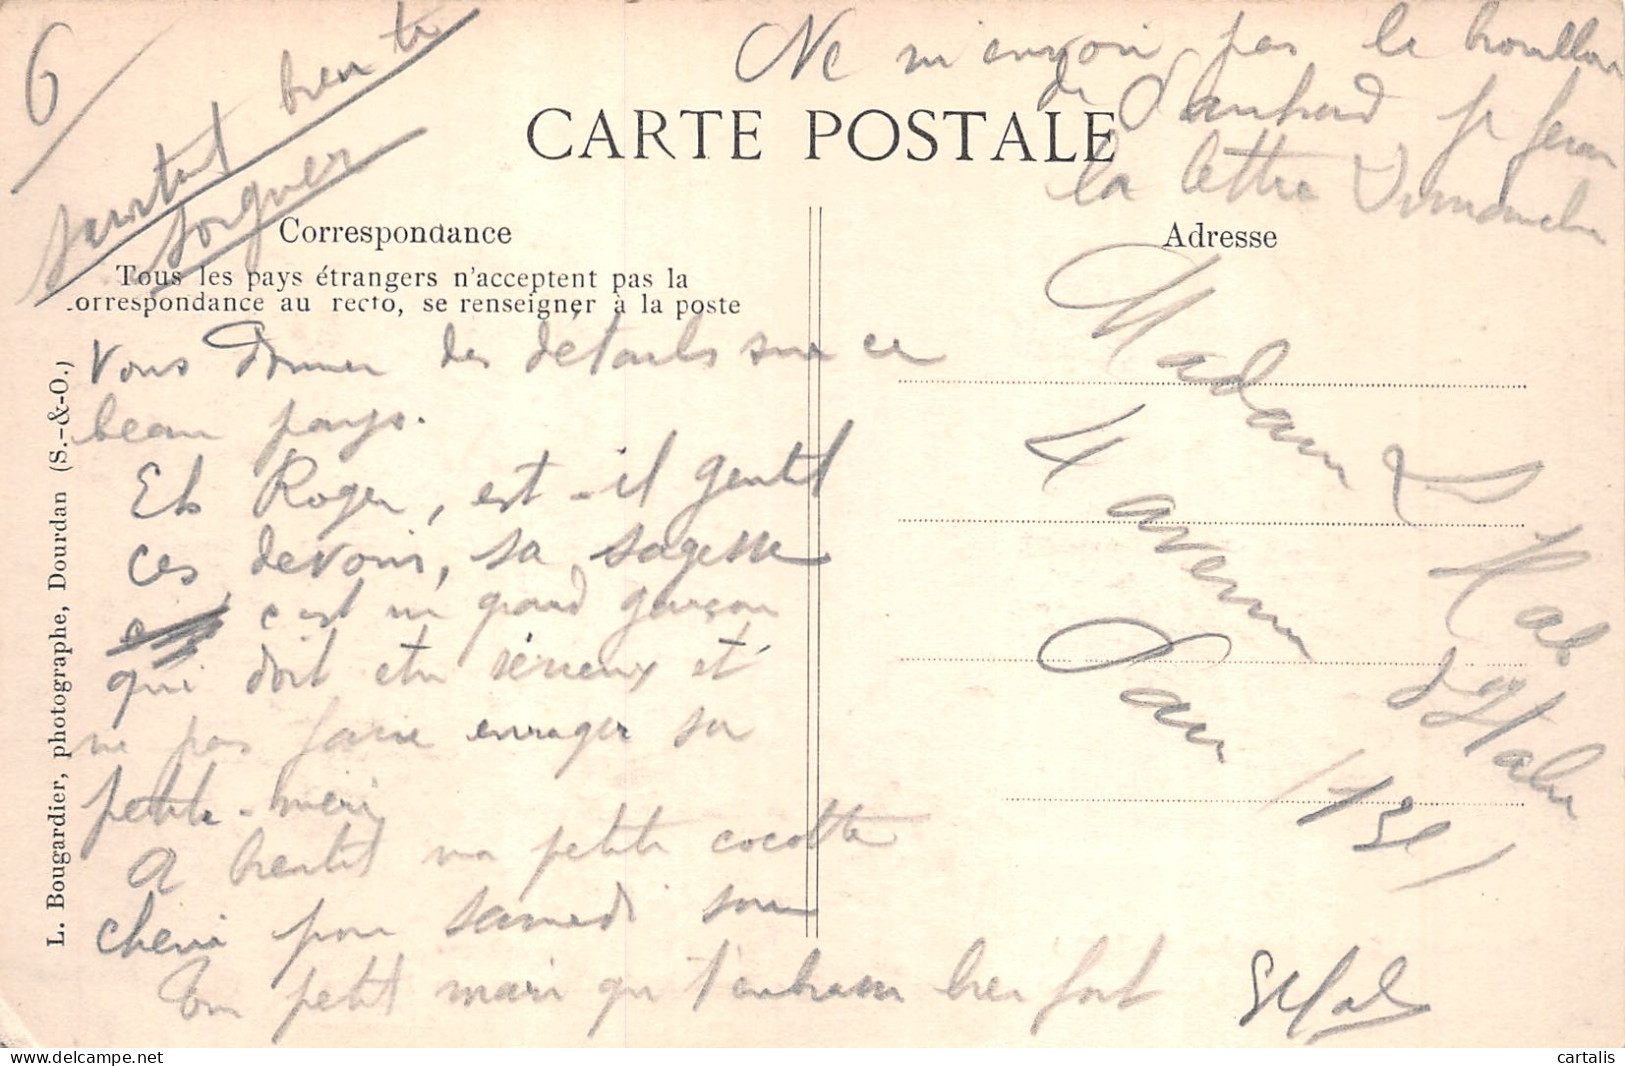 6
surtout bien te
soigner
Ne m'envoi pas le brouillon
de Panhard je ferai
la lettre Dimanche
CARTE POSTALE
Correspondance
Tous les pays étrangers n'acceptent pas la
correspondance au recto, se renseigner à la poste
Adresse
L. Bougardier, photographe, Dourdan (S.-&-O.)
Vous donner des détails sur ce
beau pays.
Et Roger, est-il gentil
ces devoirs, sa sagesse
c'est un grand garçon
qui doit etre sérieux et
ne pas faire enrager sa
petite-mère
A bientôt ma petite cocotte
cherie pour samedi soir
Ton petit mari qui t'embrasse bien fort
Madame
4 avenue d'Italie
Paris (13e)
cartalis